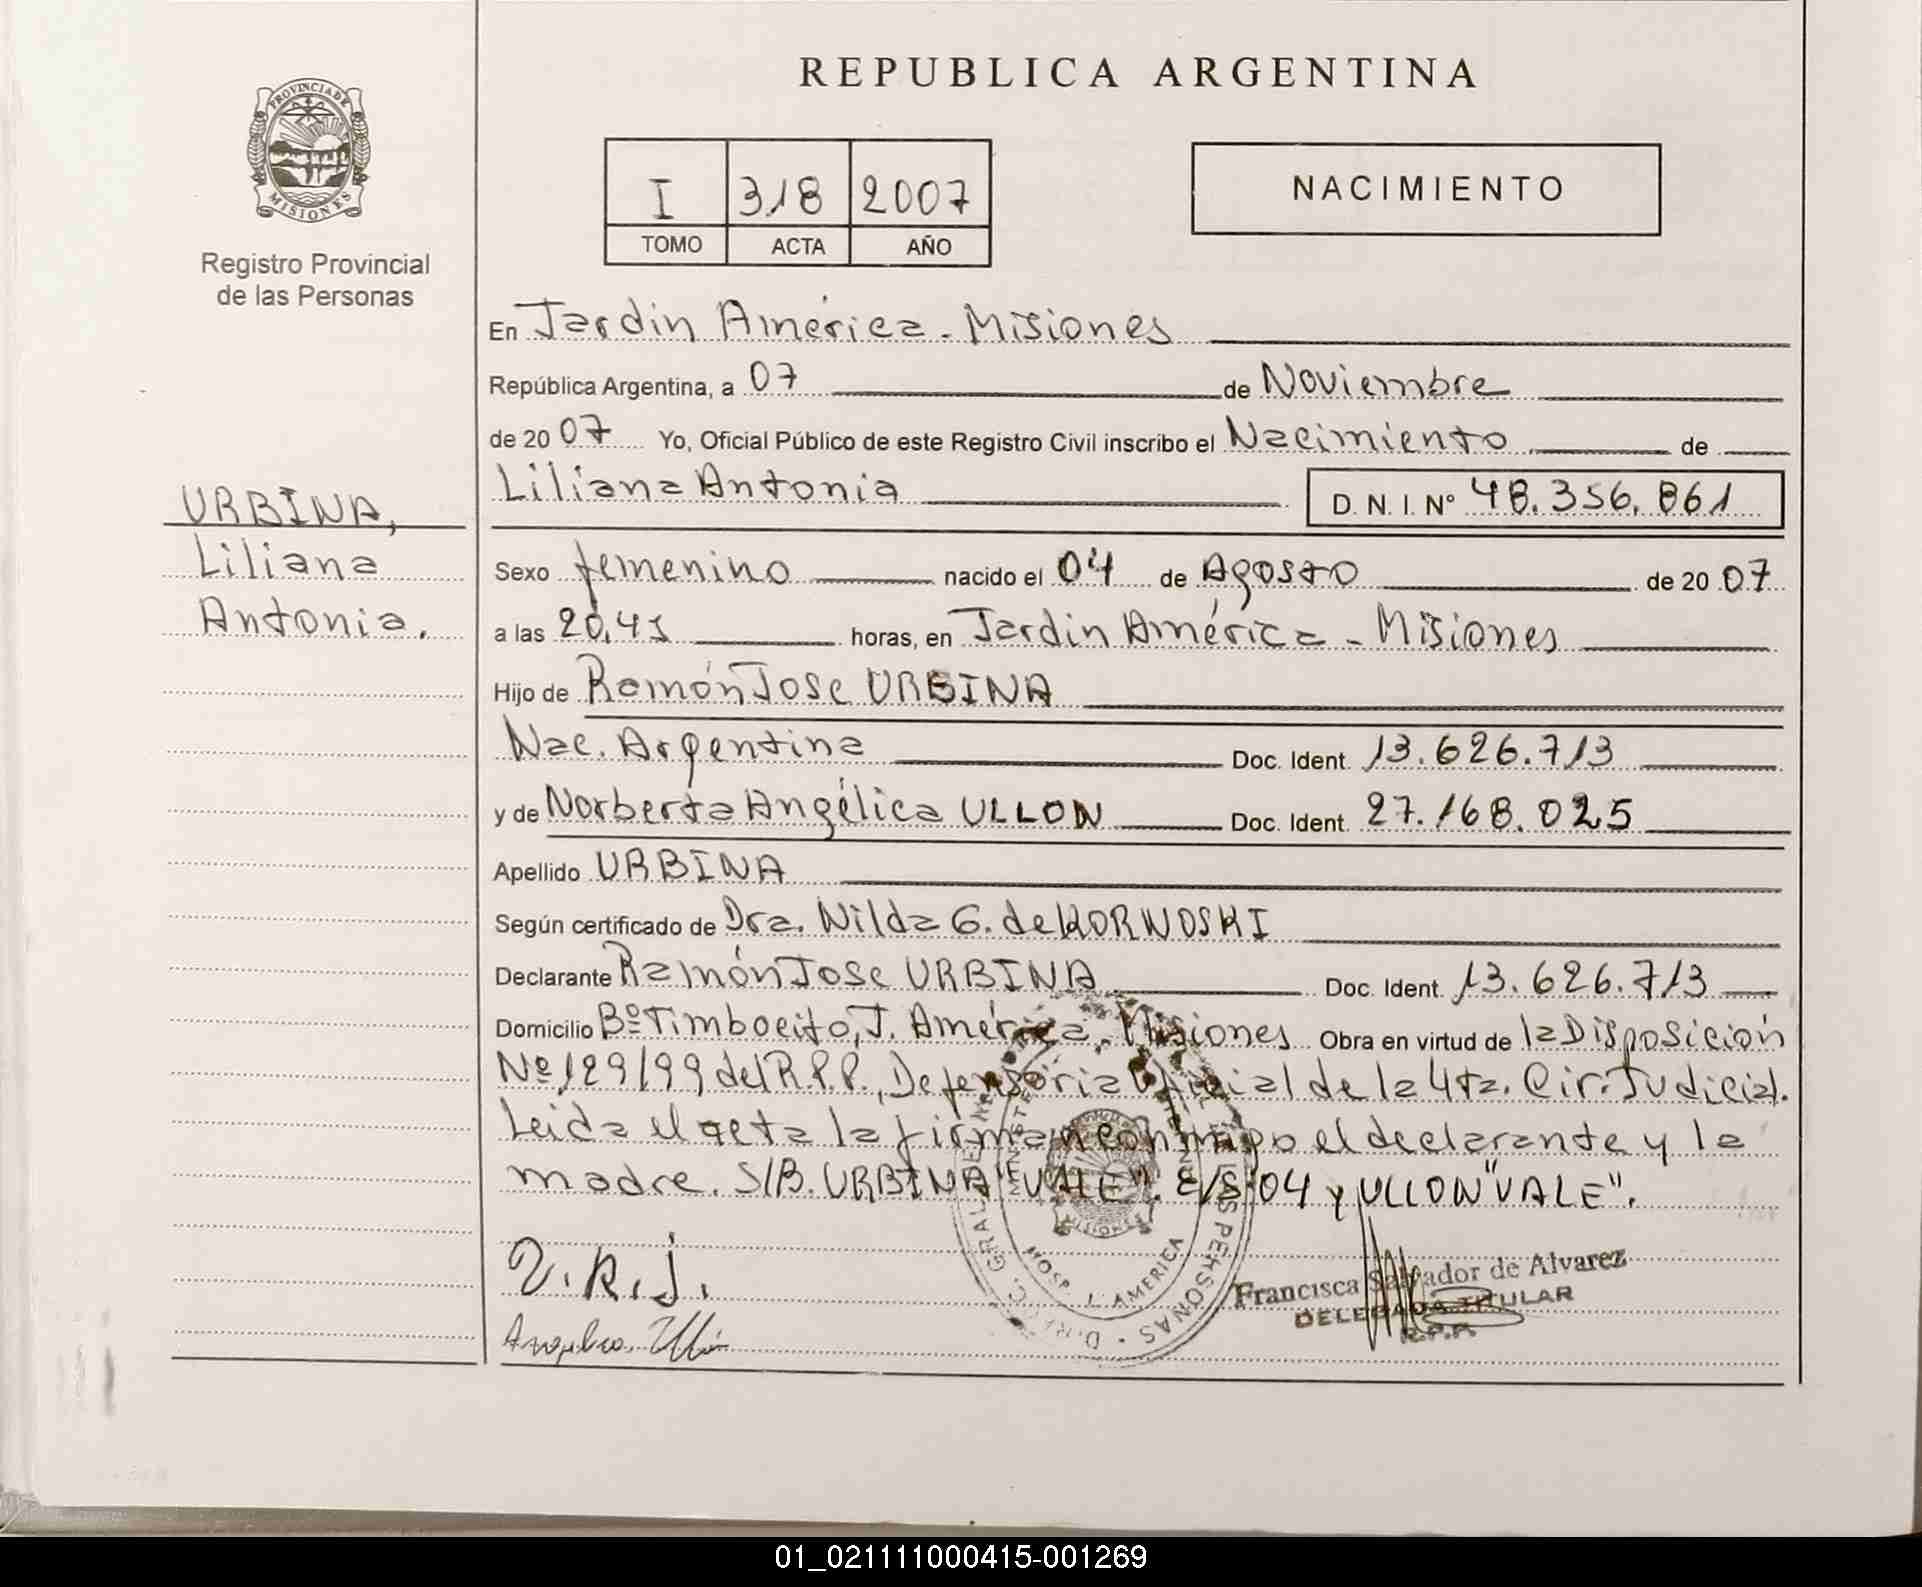 REPUBLICA ARGENTINA
PROVINCIA DE
MISIONES
Registro Provincial
de las Personas
I 318 2007
TOMO ACTA AÑO
NACIMIENTO
URBINA,
Liliana
Antonia.
En Jardin América - Misiones
República Argentina, a 07 de Noviembre
de 2007 Yo, Oficial Público de este Registro Civil inscribo el Nacimiento de
Liliana Antonia D. N. I. N° 48.356.861
Sexo femenino nacido el 04 de Agosto de 2007
a las 20,45 horas, en Jardin América - Misiones
Hijo de Ramón Jose URBINA
Nac. Argentina Doc. Ident. 13.626.713
y de Norberta Angélica ULLON Doc. Ident. 27.168.025
Apellido URBINA
Según certificado de Dra. Nilda G. de KORNOSKI
Declarante Ramón Jose URBINA Doc. Ident. 13.626.713
Domicilio Bº Timbocito, J. América, Misiones Obra en virtud de la Disposición
Nº 129/99 del R.P.P., Defensoria Oficial de la 4ta. Cir. Judicial.
Leida el acta la firman conmigo el declarante y la
madre. S/B. URBINA "VALE". E/S 04 y ULLON "VALE".
U.R.J.
Angelica Ullón
HOSP. J. AMERICA
Francisca Salvador de Alvarez
DELEGADA TITULAR
R.P.P.
01_021111000415-001269